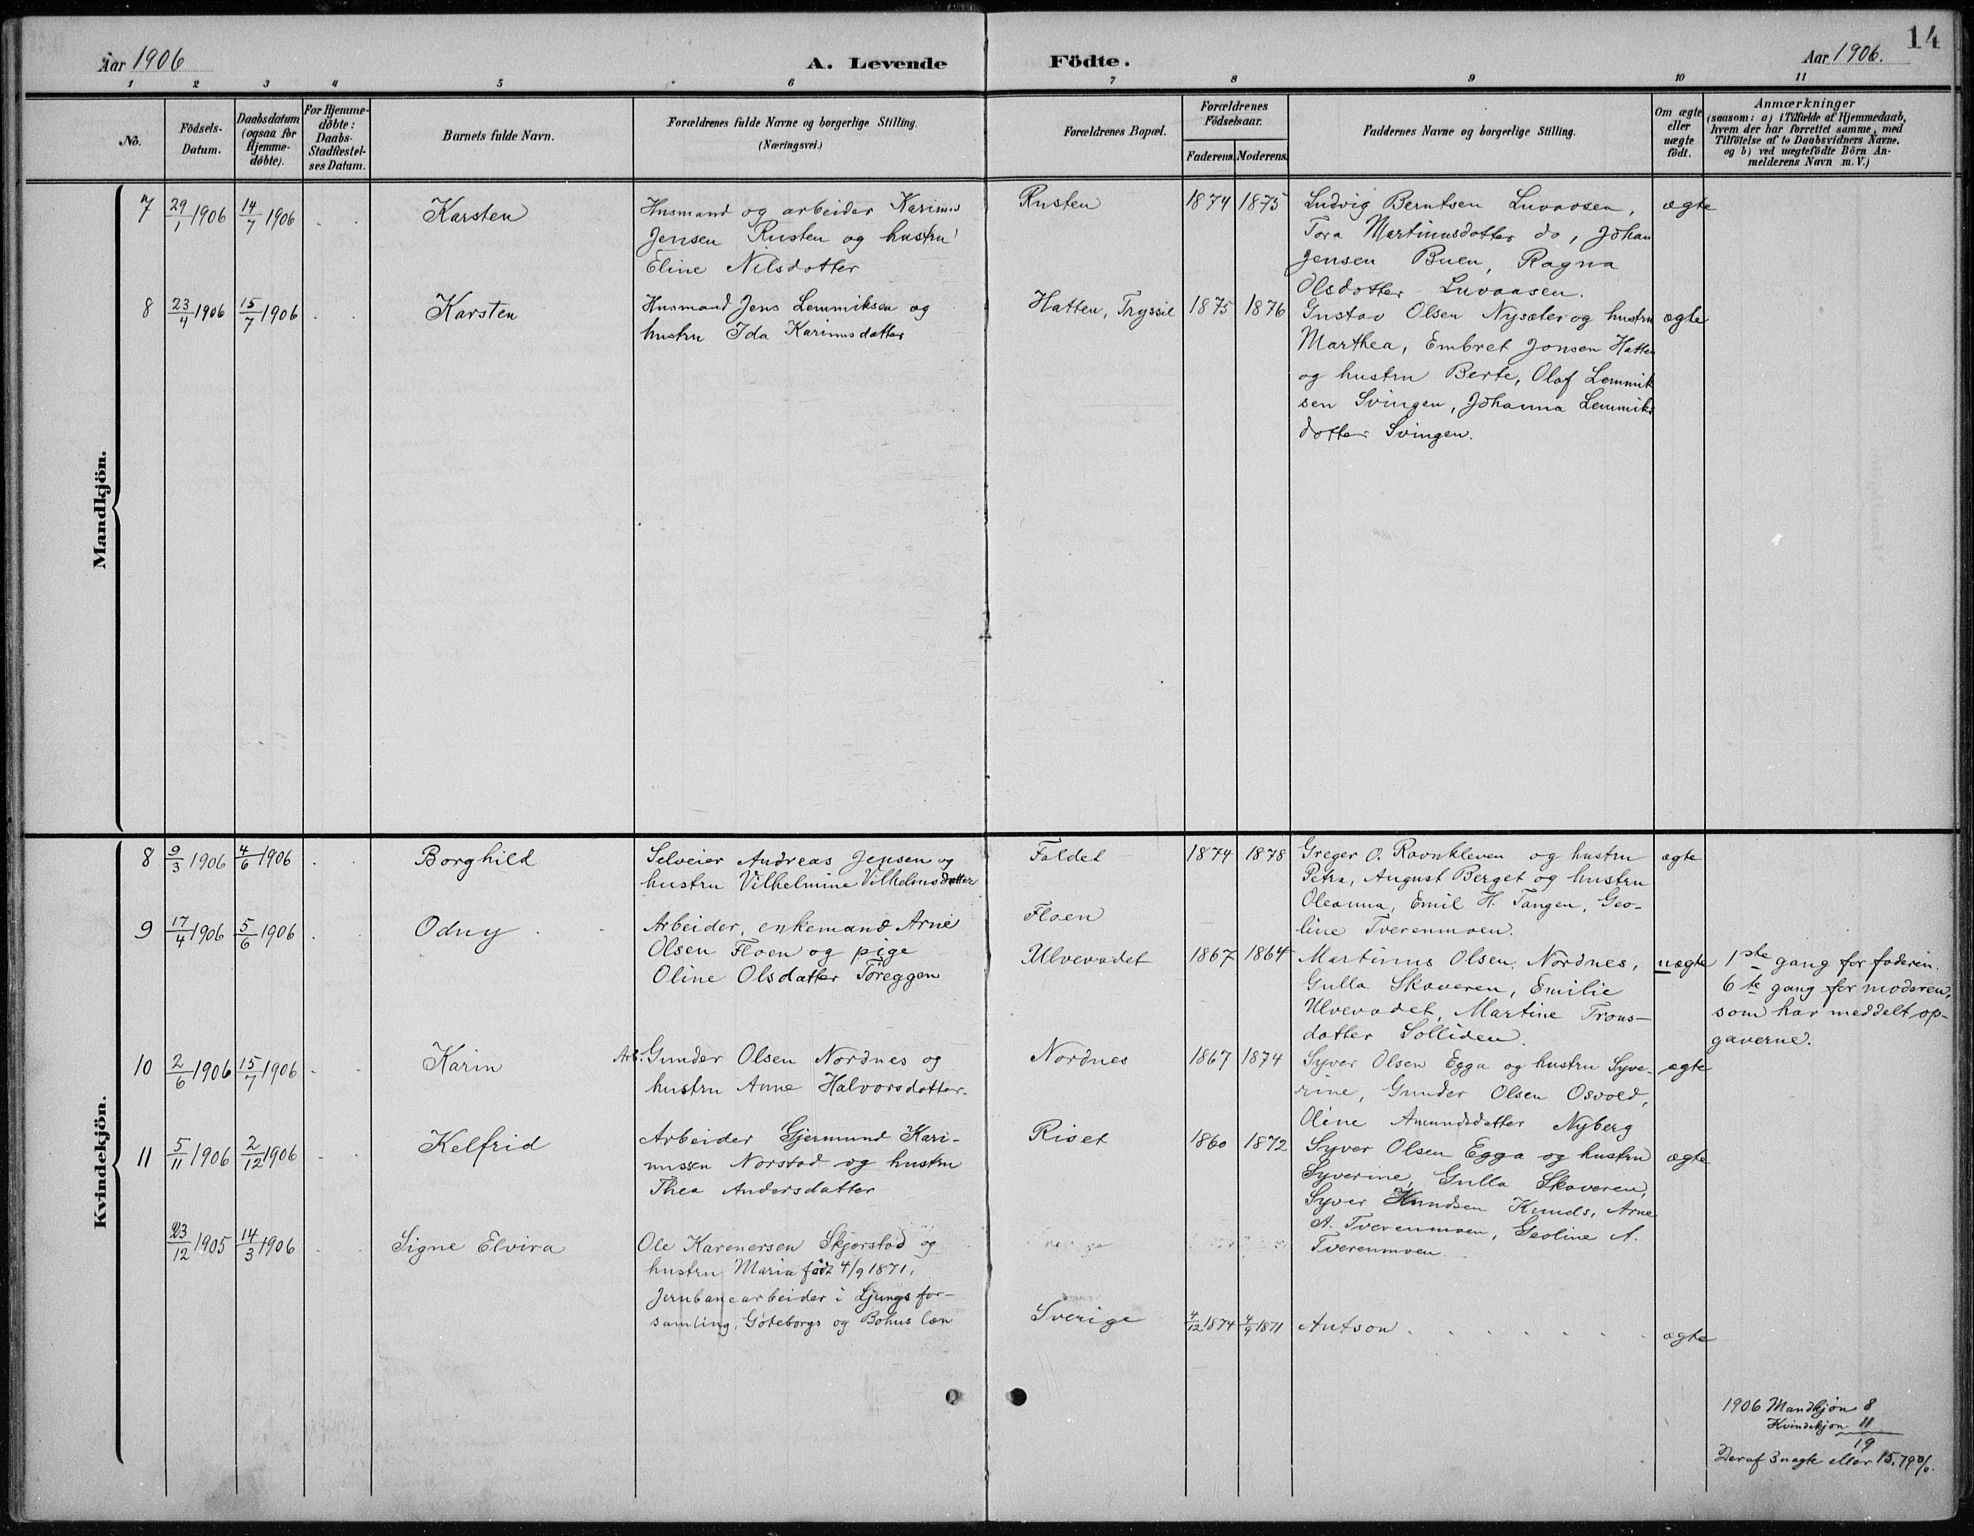 Aar 1906
A. Levende Födte.
Aar 1906.
14
1 2 3 4 5 6 7 8 9 10 11
No.
Födsels-
Datum.
Daabsdatum
(ogsaa for
Hjemme-
døbte).
For Hjemme-
døbte:
Daabs-
Stadfæstel-
ses Datum.
Barnets fulde Navn.
Forældrenes fulde Navne og borgerlige Stilling.
(Næringsvei.)
Forældrenes Bopæl.
Forældrenes
Födselsaar.
Faderens. Moderens.
Faddernes Navne og borgerlige Stilling.
Om ægte
eller
uægte
födt.
Anmærkninger
(saasom: a) i Tilfælde af Hjemmedaab,
hvem der har forrettet samme, med
Tilföielse af to Daabsvidners Navne,
og b) ved uægtefödte Börn An-
melderens Navn m. V.)
Mandkjön.
7 29/1 1906 14/7 1906 Karsten
Husmand og arbeider Karinus
Jensen Rusten og hustru
Eline Nilsdotter
Rusten 1874 1875
Ludvig Berntsen Luvaasen,
Tora Martinusdotter do, Johan
Jensen Buen, Ragna
Olsdotter Luvaasen.
ægte
8 23/4 1906 15/7 1906 Karsten
Husmand Jens Lemmiksen og
hustru Ida Karinusdatter
Hatten, Tryssil 1875 1876
Gustav Olsen Nysæter og hustru
Marthea, Embret Jonsen Hatten
og hustru Berte, Olaf Lemmik
sen Svingen, Johanna Lemmiks
dotter Svingen.
ægte
Kvindekjön.
8 9/3 1906 4/6 1906 Borghild
Selveier Andreas Jensen og
hustru Vilhelmine Vilhelmsdatter
Foldet 1874 1878
Greger O. Ravnkleven og hustru
Petra, August Berget og hustru
Oleanna, Emil H. Tangen, Geo-
line Tverenmoen.
ægte
9 17/4 1906 5/6 1906 Odny
Arbeider, enkemand Arne
Olsen Floen og pige
Oline Olsdatter Töreggen
Floen
Ulvevadet 1867 1864
Martinus Olsen Nordnes,
Gulla Skaveren, Emilie
Ulvevadet, Martine Trons-
datter Solliden.
uægte
1ste gang for faderen.
6te gang for moderen,
som har meddelt op-
gaverne.
10 2/6 1906 15/7 1906 Karin
Arb. Gunder Olsen Nordnes og
hustru Anne Halvorsdotter.
Nordnes 1867 1874
Syver Olsen Egga og hustru Syve-
rine, Gunder Olsen Osvold,
Oline Amundsdatter Nyberg
ægte
11 5/11 1906 2/12 1906 Kelfrid
Arbeider Gjermund Kari-
nussen Norstad og hustru
Thea Andersdatter
Riset 1860 1872
Syver Olsen Egga og hustru
Syverine, Gulla Skaveren,
Syver Knudsen Knuds, Arne
A. Tverenmoen, Geoline A.
Tverenmoen.
ægte
23/12 1905 14/3 1906 Signe Elvira
Ole Karenersen Skjærstad og
hustru Maria född 4/9 1871,
Jernbanearbeider i Ljungs for-
samling, Göteborgs og Bohus læn
Sverige 4/12 1874 4/9 1871
Antson
ægte
1906 Mandkjön 8
Kvindekjön 11
19
Deraf 3 uægte eller 15,79 %.